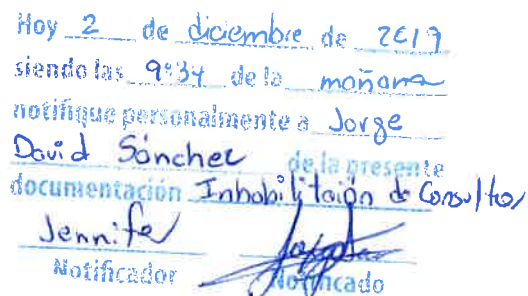 Hoy 2 de diciembre de 2019
siendo las 9:34 de la mañana
notifique personalmente a Jorge
David Sánchez de la presente
documentación Inhabilitaión de Consultor
Jennifer
Notificador Notificado